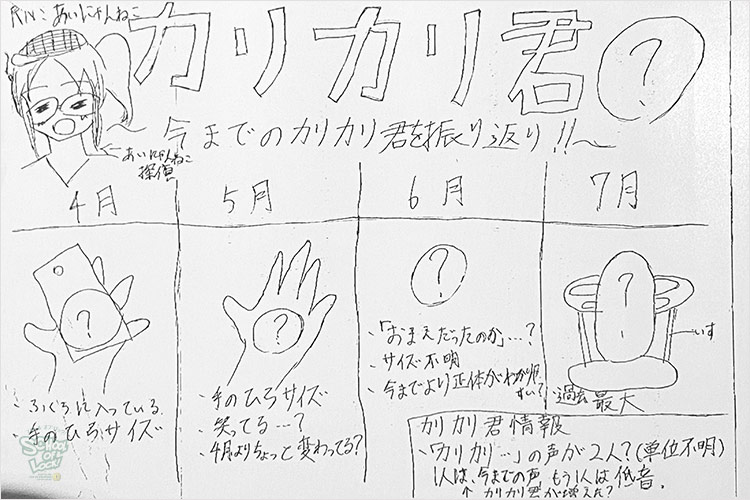 RN：あいにゃんねこ
カリカリ君？
〜今までのカリカリ君を振り返り!!〜
←あいにゃんねこ
探偵
4月
5月
6月
7月
？
・ふくろに入っている
・手のひらサイズ
？
・手のひらサイズ
・笑ってる…？
・4月よりちょっと変わってる？
？
・「おまえだったのか…？
・サイズ不明
・今までより正体がわかりやすい？
？
いす
過去最大
カリカリ君情報
・「カリカリ…」の声が2人？(単位不明)
1人は、今までの声、もう1人は低音。
↑カリカリ君が増えた？
SCHOOL OF LOCK!